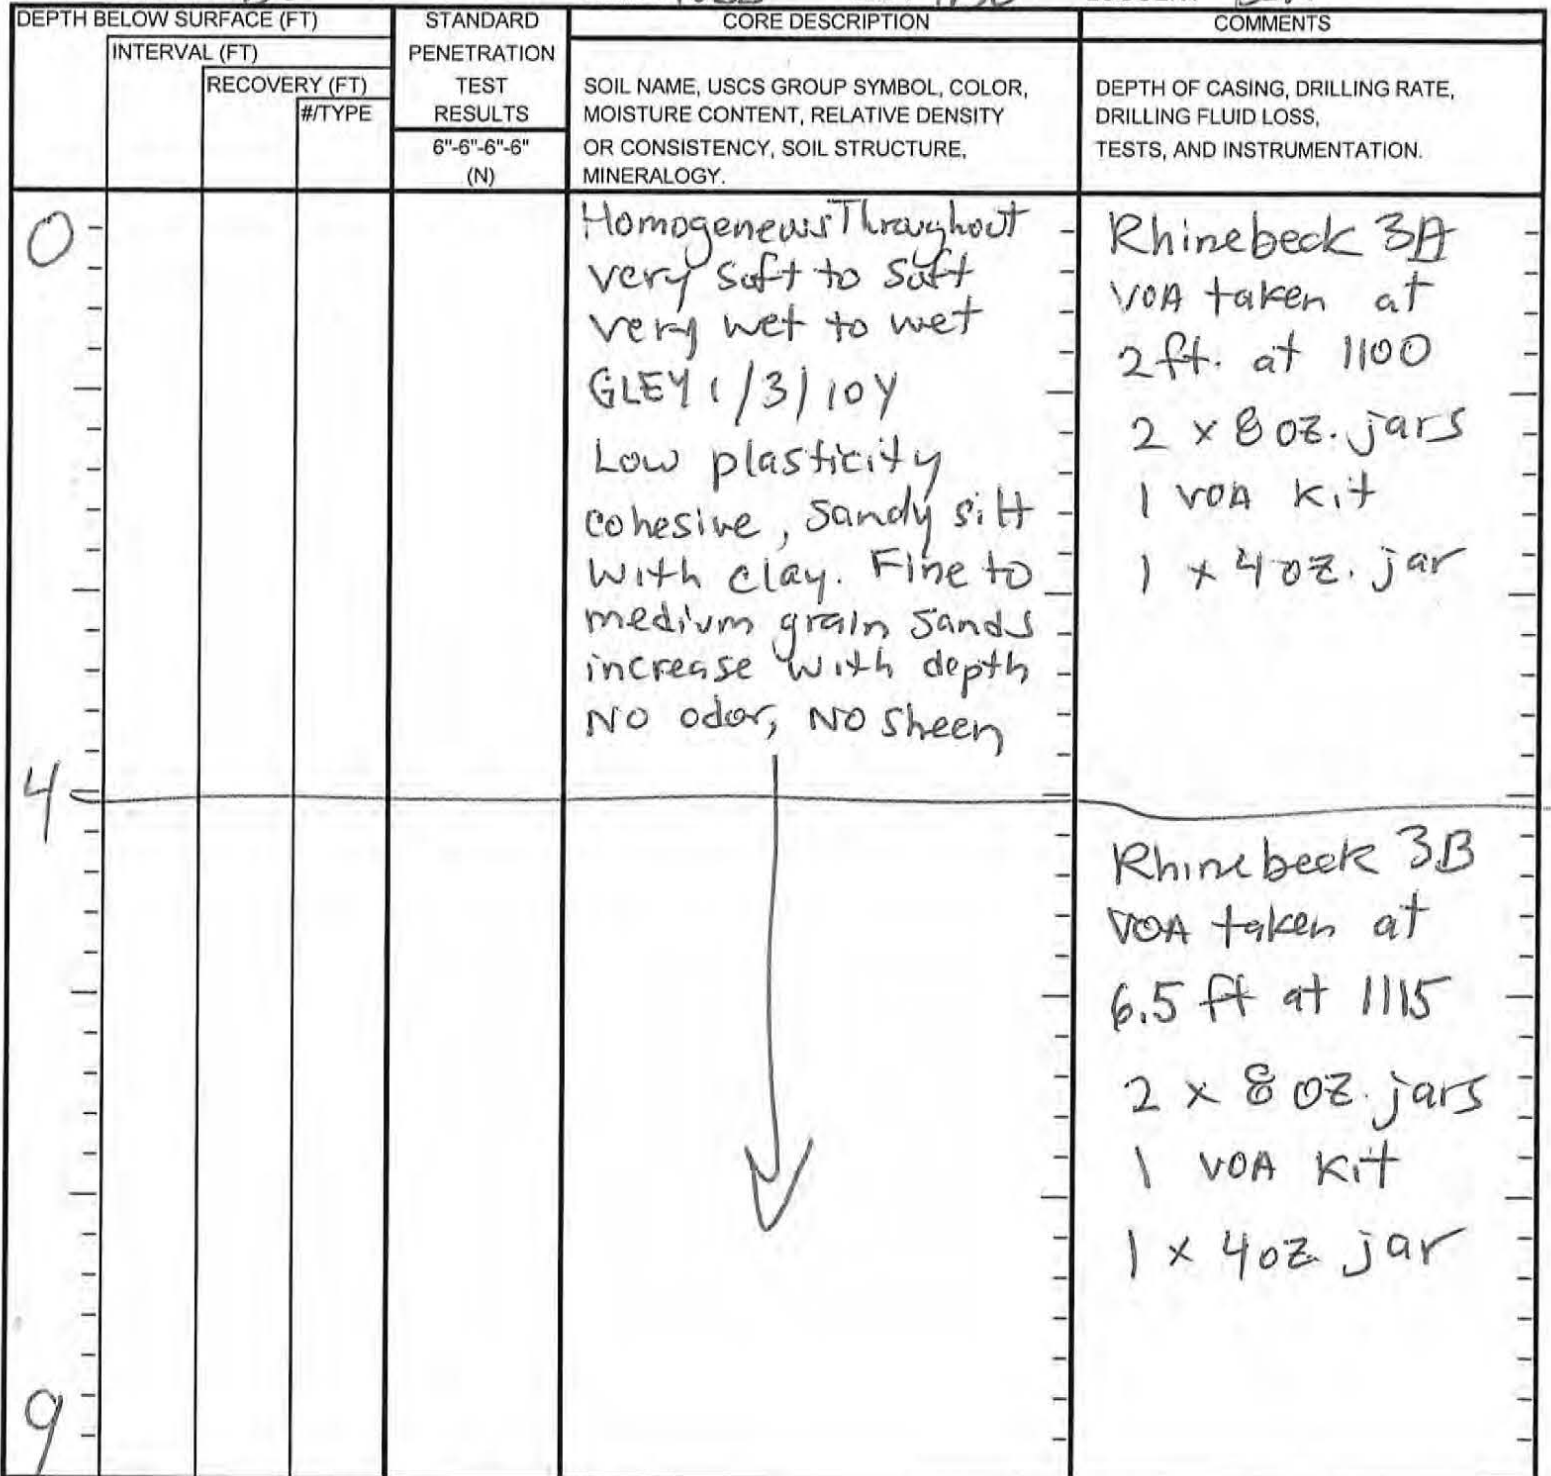 DEPTH BELOW SURFACE (FT)
INTERVAL (FT)
RECOVERY (FT)
#/TYPE
STANDARD
PENETRATION
TEST
RESULTS
6"-6"-6"-6"
(N)
CORE DESCRIPTION
SOIL NAME, USCS GROUP SYMBOL, COLOR,
MOISTURE CONTENT, RELATIVE DENSITY
OR CONSISTENCY, SOIL STRUCTURE,
MINERALOGY.
COMMENTS
DEPTH OF CASING, DRILLING RATE,
DRILLING FLUID LOSS,
TESTS, AND INSTRUMENTATION.
0
Homogeneous Throughout
very soft to soft
very wet to wet
GLEY 1/3/10Y
Low plasticity
cohesive, Sandy silt
with clay. Fine to
medium grain sands
increase with depth
NO odor, NO sheen
Rhinebeck 3A
VOA taken at
2 ft. at 1100
2 x 8 oz. jars
1 VOA Kit
1 x 4 oz. jar
4
Rhinebeck 3B
VOA taken at
6.5 ft at 1115
2 x 8 oz. jars
1 VOA Kit
1 x 4 oz. jar
9